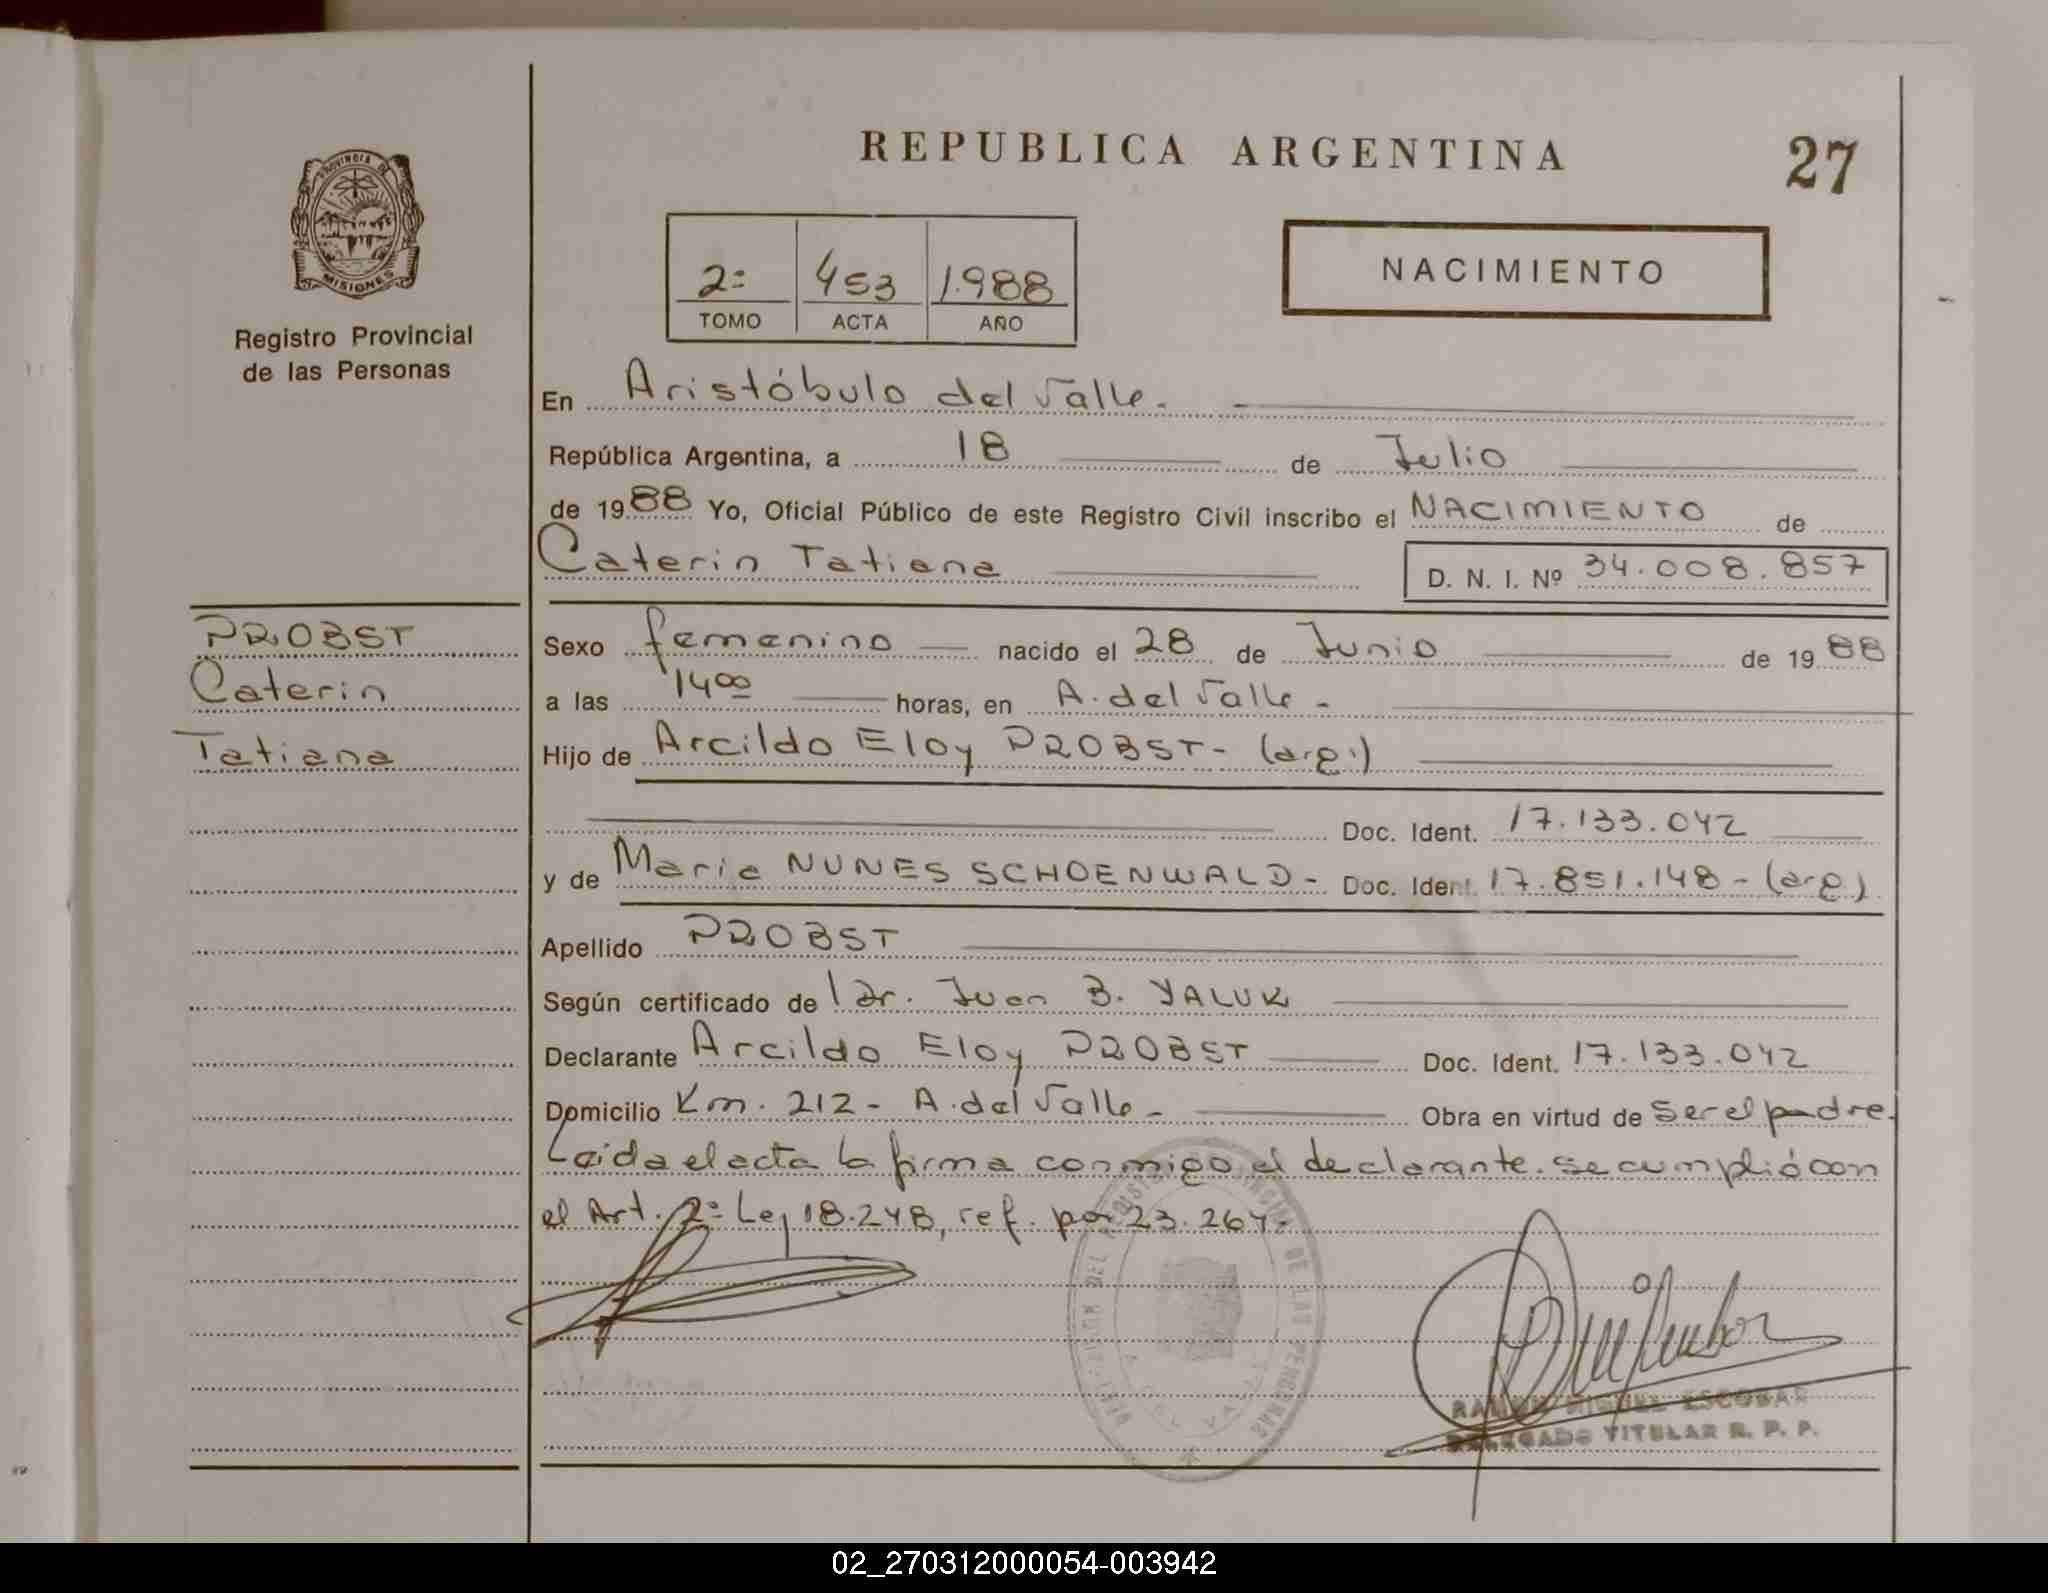 REPUBLICA ARGENTINA
27
PROVINCIA DE
MISIONES
Registro Provincial
de las Personas
2º 453 1.988
TOMO ACTA AÑO
NACIMIENTO
En Aristóbulo del Valle.-
República Argentina, a 18 de Julio
de 1988 Yo, Oficial Público de este Registro Civil inscribo el NACIMIENTO de
Caterin Tatiana
D. N. I. Nº 34.008.857
PROBST
Caterin
Tatiana
Sexo femenino nacido el 28 de Junio de 1988
a las 14⁰⁰ horas, en A. del Valle -
Hijo de Arcildo Eloy PROBST - (arg.)
Doc. Ident. 17.133.042
y de Maria NUNES SCHOENWALD - Doc. Ident. 17.851.148 - (arg)
Apellido PROBST
Según certificado de Dr. Juan B. YALUK
Declarante Arcildo Eloy PROBST Doc. Ident. 17.133.042
Domicilio Km. 212 - A. del Valle - Obra en virtud de ser el padre.
Leida el acta la firma conmigo el declarante. se cumplió con
el Art. 2º Ley 18.248, ref. por 23.264.
DEL REGISTRO PROVINCIAL DE LAS PERSONAS
RAMON MIGUEL ESCOBAR
DELEGADO TITULAR R. P. P.
02_270312000054-003942